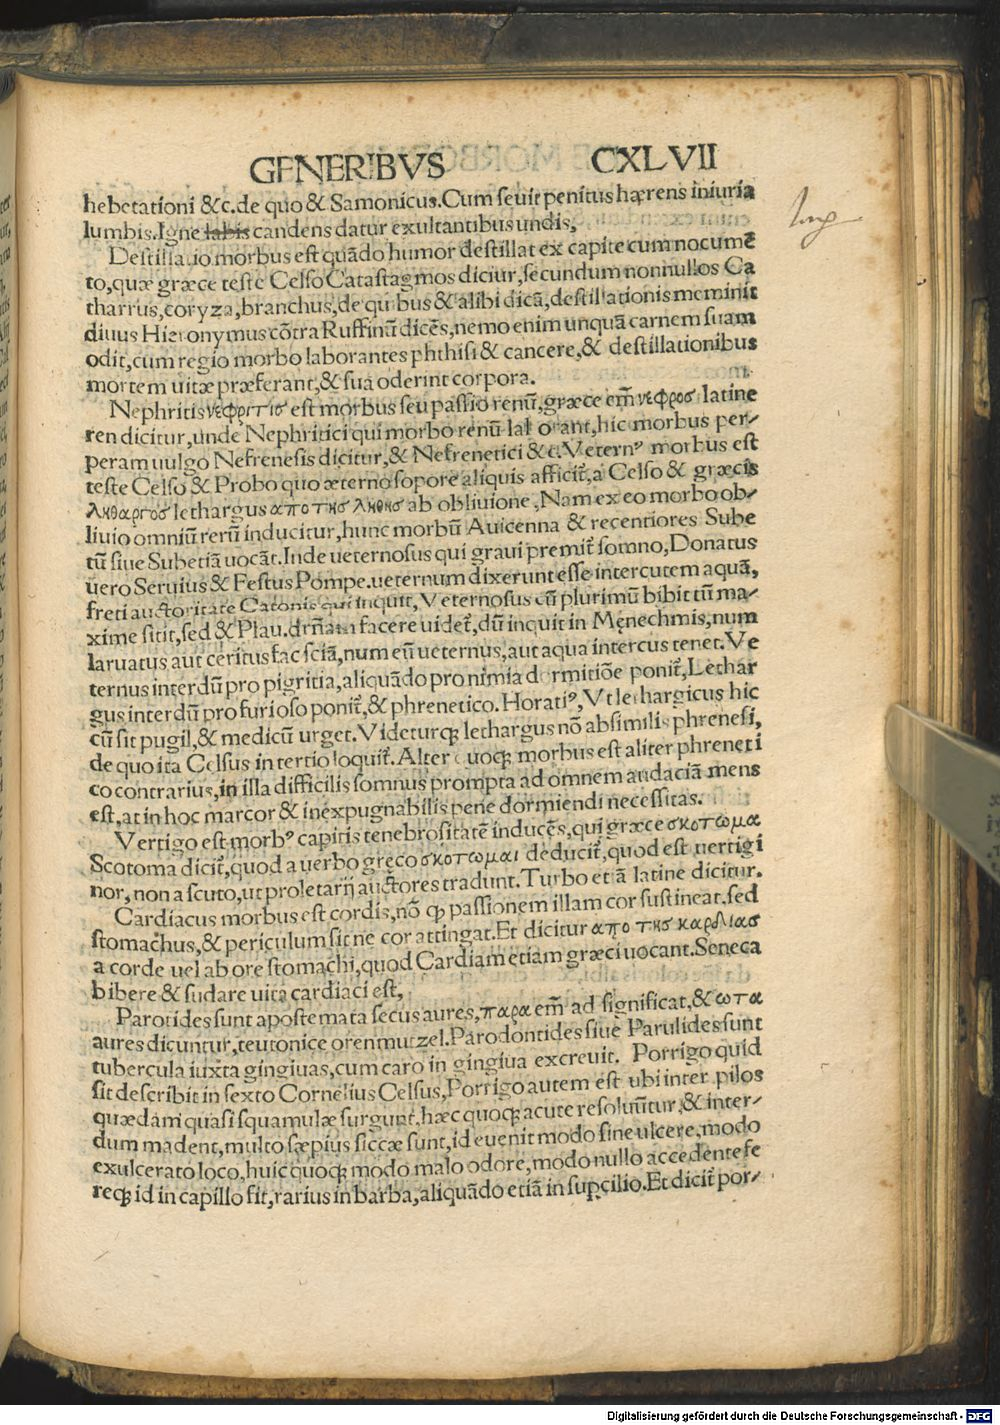 GENERIBVS CXLVII
hebetationi &c. de quo & Samonicus. Cum seuit penitus hærens iniuria
lumbis. Igne labis candens datur exultantibus undis,
Destillatio morbus est quãdo humor destillat ex capite cum nocumẽ
to, quæ græce teste Celso Catastagmos diciur, secundum nonnullos Ca
tharrus, coryza, branchus, de quibus & alibi dicã, destillationis meminit
diuus Hieronymus cõtra Ruffinũ dicẽs, nemo enim unquã carnem suam
odit, cum regio morbo laborantes phthisi & cancere, & destillationibus
mortem uitæ præferant, & sua oderint corpora.
Nephritis νεφριτισ est morbus seu passio renũ, græce em̃ νεφροσ latine
ren dicitur, unde Nephritici qui morbo renũ laborant, hic morbus per-
peram uulgo Nefrenesis dicitur, & Nefrenetici &c. Veternꝰ morbus est
teste Celso & Probo quo æterno sopore aliquis afficit᷑, a Celso & græcis
ληθαργοσ lethargus απο τησ ληθησ ab obliuione, Nam ex eo morbo ob-
liuio omniũ rerũ inducitur, hunc morbũ Auicenna & recentiores Sube
tũ siue Subetiã uocãt. Inde ueternosus qui graui premit᷑ somno, Donatus
uero Seruius & Festus Pompe. ueternum dixerunt esse intercutem aquã,
freti auctoritate Catonis qui inquit, Veternosus cũ plurimũ bibit tũ ma-
xime sitit, sed & Plau. dr̃ñam facere uidet᷑, dũ inquit in Męnechmis, num
laruatus aut ceritus fac sciã, num eũ ueternus, aut aqua intercus tenet. Ve
ternus interdũ pro pigritia, aliquãdo pro nimia dormitiõe ponit᷑, Lethar
gus interdũ pro furioso ponit᷑, & phrenetico. Horatiꝰ, Vt lethargicus hic
cũ fit pugil, & medicũ urget. Videturqꝫ lethargus nõ absimilis phrenesi,
de quo ita Celsus in tertio loquit᷑. Alter quoqꝫ morbus est aliter phreneti
co contrarius, in illa difficilis somnus prompta ad omnem audaciã mens
est, at in hoc marcor & inexpugnabilis pene dormiendi necessitas.
Vertigo est morbꝰ capitis tenebrositatẽ inducẽs, qui græce σκοτωμα
Scotoma dicit᷑, quod a uerbo gręco σκοτωμαι deducit᷑, quod est uertigi
nor, non a scuto, ut proletarij auctores tradunt. Turbo etiã latine dicitur.
Cardiacus morbus est cordis, nõ ꝙ passionem illam cor sustineat, sed
stomachus, & periculum sit ne cor attingat. Et dicitur απο τησ καρδιασ
a corde uel ab ore stomachi, quod Cardiam etiam græci uocant. Seneca
bibere & sudare uita cardiaci est,
Parotides sunt apostemata secus aures, παρα em̃ ad significat, & ωτα
aures dicuntur, teutonice orenmutzel. Parodontides siue Parulides sunt
tubercula iuxta gingiuas, cum caro in gingiua excreuit. Porrigo quid
sit describit in sexto Cornelius Celsus, Porrigo autem est ubi inter pilos
quædam quasi squamulæ surgunt, hæc quoqꝫ acute resoluũtur, & inter-
dum madent, multo sæpius siccæ sunt, id euenit modo sine ulcere, modo
exulcerato loco, huic quoqꝫ modo malo odore, modo nullo accedente fe
reqꝫ id in capillo fit, rarius in barba, aliquãdo etiã in suꝑcilio. Et dicit᷑ por-
Digitalisierung gefördert durch die Deutsche Forschungsgemeinschaft - DFG